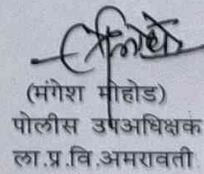 (मंगेश मोहोड)
पोलीस उपअधिक्षक
ला.प्र.वि.अमरावती